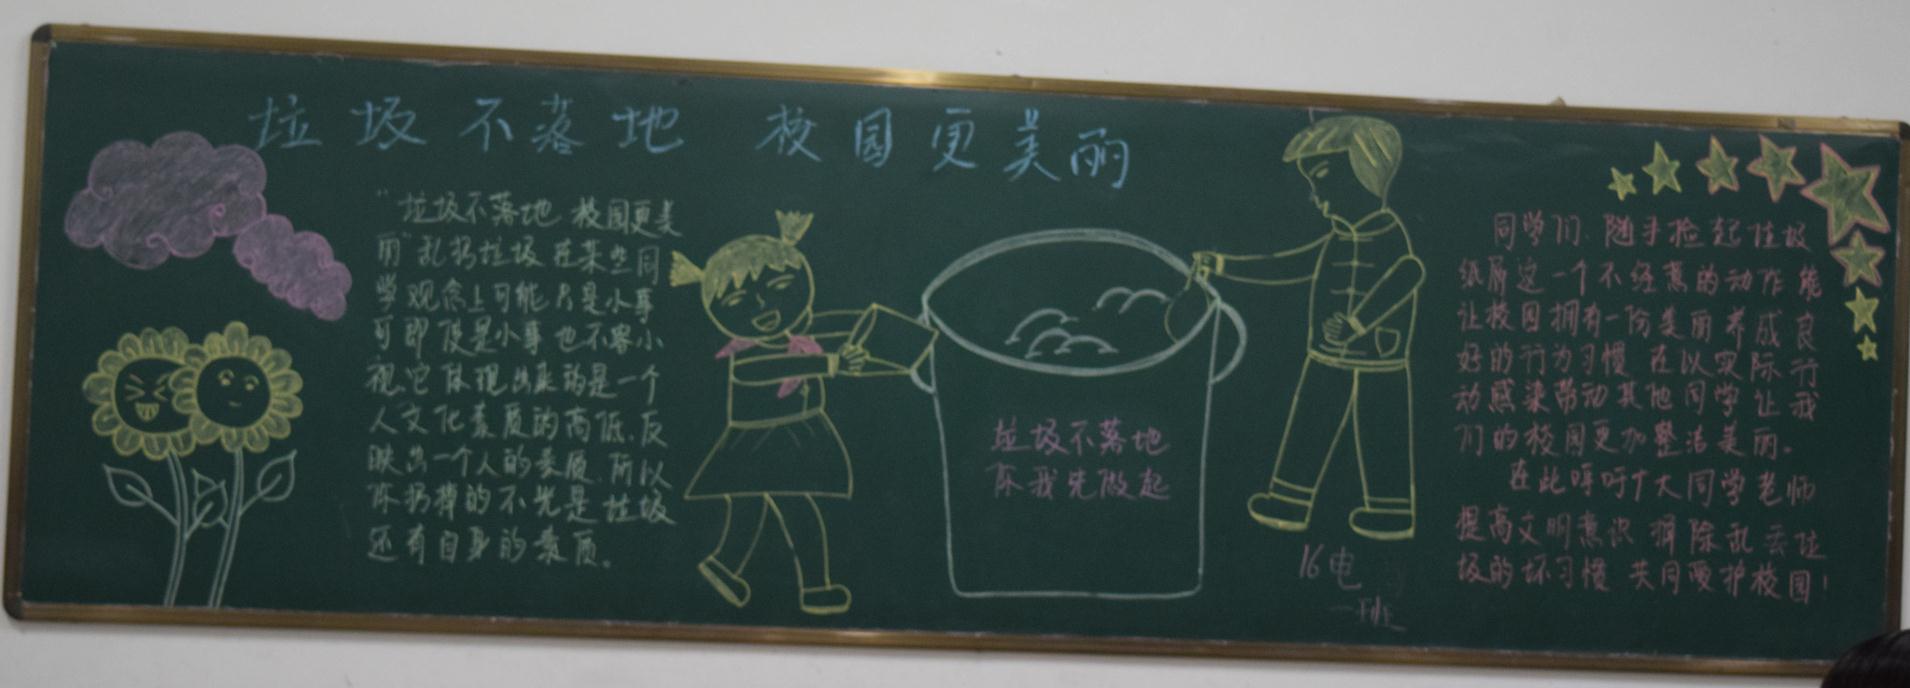 垃圾不落地 校园更美丽
“垃圾不落地 校园更美
丽”乱扔垃圾 在某些同
学观念上可能只是小事
可即使是小事也不容小
视,它体现出来的是一个
人文化素质的高低,反
映出一个人的素质,所以
你扔掉的不光是垃圾
还有自身的素质。
垃圾不落地
你我先做起
16电
一班
同学们、随手捡起垃圾
纸屑这一个不经意的动作能
让校园拥有一份美丽养成良
好的行为习惯 在以实际行
动感染带动其他同学让我
们的校园更加整洁美丽。
在此呼吁广大同学老师
提高文明意识 摒除乱丢垃
圾的坏习惯 共同爱护校园!